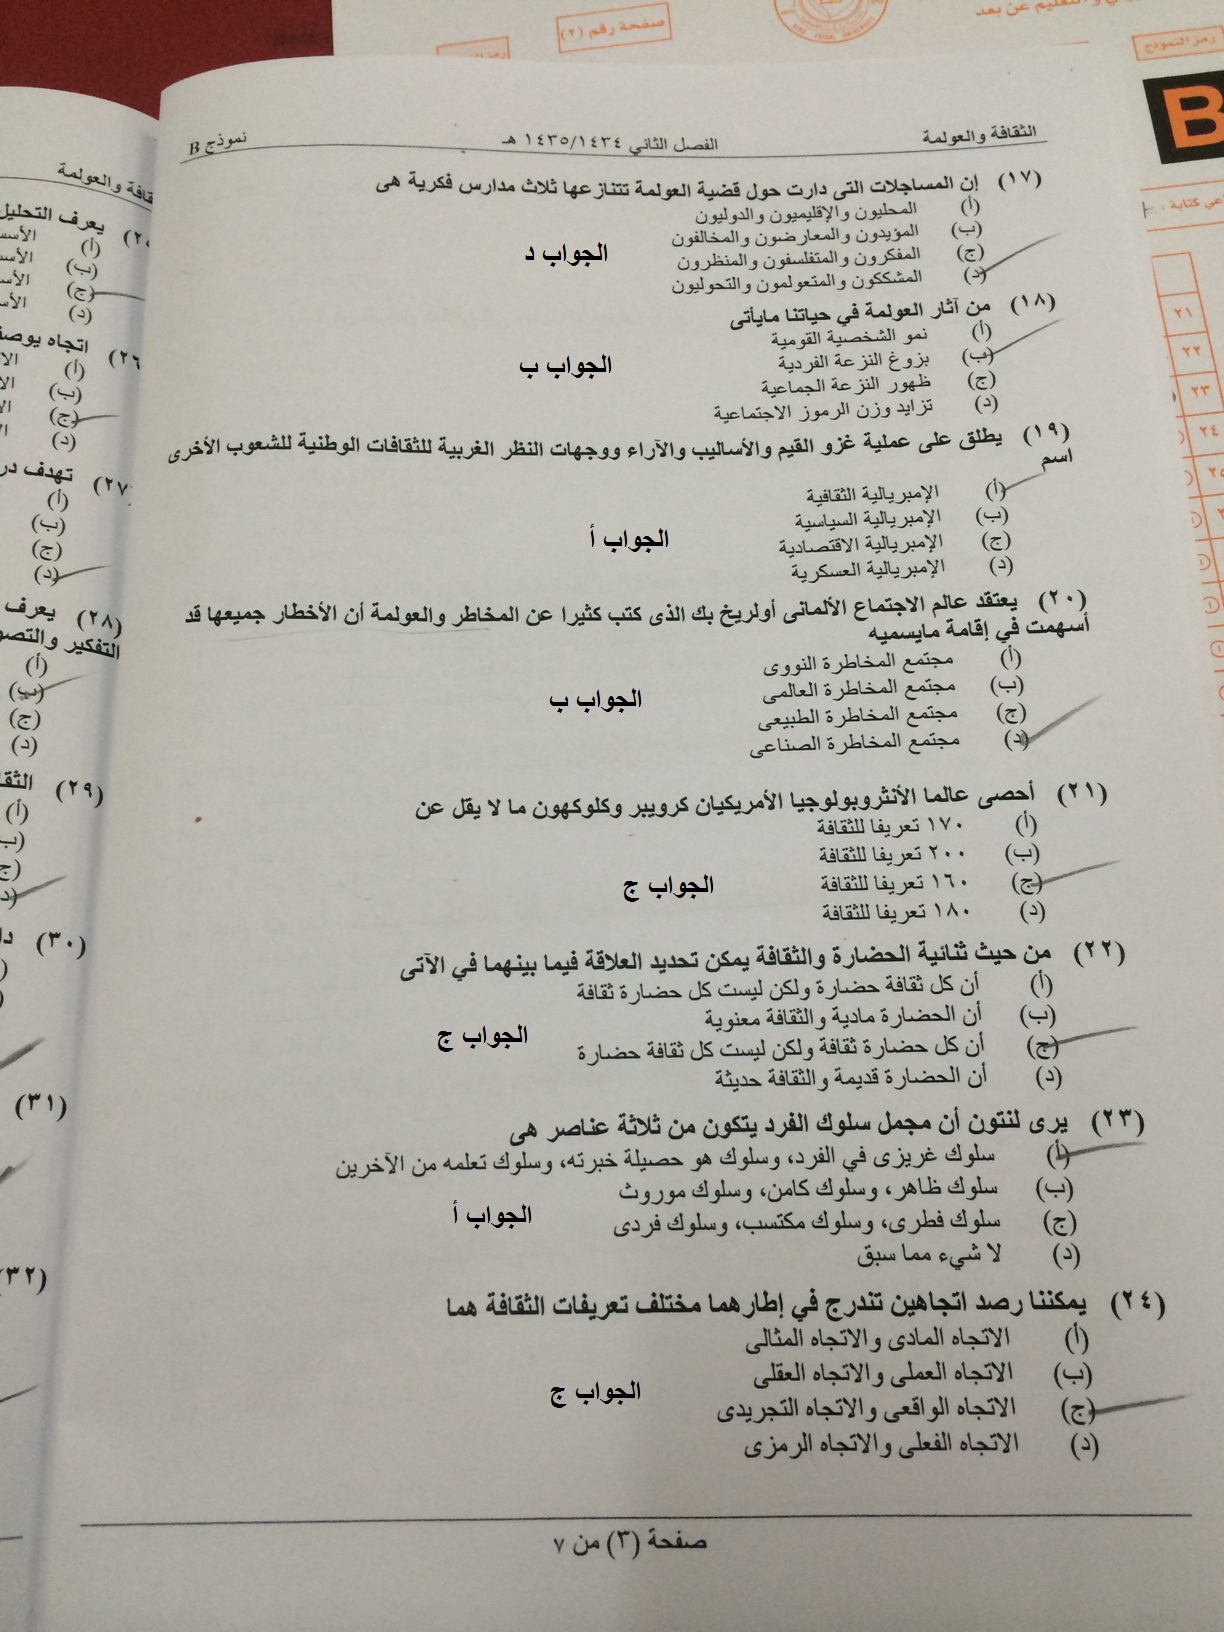 ي والتعليم عن بعد
صفحة رقم (٢)
رمز النموذج
B
عي كتابة
٢١
٢٢
٢٣
٢٤
الثقافة والعولمة
الفصل الثاني ١٤٣٥/١٤٣٤ هـ
نموذج B
(١٧) إن المساجلات التى دارت حول قضية العولمة تتنازعها ثلاث مدارس فكرية هى
(أ) المحليون والإقليميون والدوليون
(ب) المؤيدون والمعارضون والمخالفون
(ج) المفكرون والمتفلسفون والمنظرون
(د) المشككون والمتعولمون والتحوليون
الجواب د
(١٨) من آثار العولمة في حياتنا مايأتى
(أ) نمو الشخصية القومية
(ب) بزوغ النزعة الفردية
(ج) ظهور النزعة الجماعية
(د) تزايد وزن الرموز الاجتماعية
الجواب ب
(١٩) يطلق على عملية غزو القيم والأساليب والآراء ووجهات النظر الغربية للثقافات الوطنية للشعوب الأخرى
اسم
(أ) الإمبريالية الثقافية
(ب) الإمبريالية السياسية
(ج) الإمبريالية الاقتصادية
(د) الإمبريالية العسكرية
الجواب أ
(٢٠) يعتقد عالم الاجتماع الألمانى أولريخ بك الذى كتب كثيرا عن المخاطر والعولمة أن الأخطار جميعها قد
أسهمت في إقامة مايسميه
(أ) مجتمع المخاطرة النووى
(ب) مجتمع المخاطرة العالمى
(ج) مجتمع المخاطرة الطبيعى
(د) مجتمع المخاطرة الصناعى
الجواب ب
(٢١) أحصى عالما الأنثروبولوجيا الأمريكيان كرويبر وكلوكهون ما لا يقل عن
(أ) ١٧٠ تعريفا للثقافة
(ب) ٢٠٠ تعريفا للثقافة
(ج) ١٦٠ تعريفا للثقافة
(د) ١٨٠ تعريفا للثقافة
الجواب ج
(٢٢) من حيث ثنائية الحضارة والثقافة يمكن تحديد العلاقة فيما بينهما في الآتى
(أ) أن كل ثقافة حضارة ولكن ليست كل حضارة ثقافة
(ب) أن الحضارة مادية والثقافة معنوية
(ج) أن كل حضارة ثقافة ولكن ليست كل ثقافة حضارة
(د) أن الحضارة قديمة والثقافة حديثة
الجواب ج
(٢٣) يرى لنتون أن مجمل سلوك الفرد يتكون من ثلاثة عناصر هى
(أ) سلوك غريزى في الفرد، وسلوك هو حصيلة خبرته، وسلوك تعلمه من الآخرين
(ب) سلوك ظاهر، وسلوك كامن، وسلوك موروث
(ج) سلوك فطرى، وسلوك مكتسب، وسلوك فردى
(د) لا شيء مما سبق
الجواب أ
(٢٤) يمكننا رصد اتجاهين تندرج في إطارهما مختلف تعريفات الثقافة هما
(أ) الاتجاه المادى والاتجاه المثالى
(ب) الاتجاه العملى والاتجاه العقلى
(ج) الاتجاه الواقعى والاتجاه التجريدى
(د) الاتجاه الفعلى والاتجاه الرمزى
الجواب ج
صفحة (٣) من ٧
قافة والعولمة
يعرف التحليل
(أ) الأسس
(ب) الأسس
(ج) الأسس
(د) الأسس
(٢٦) اتجاه يوصف
(أ)
(ب)
(ج)
(د)
(٢٧) تهدف در
(أ)
(ب)
(ج)
(د)
(٢٨) يعرف
التفكير والتصو
(أ)
(ب)
(ج)
(د)
(٢٩) الثقا
(أ)
(٣٠)
(٣١)
(٣٢)